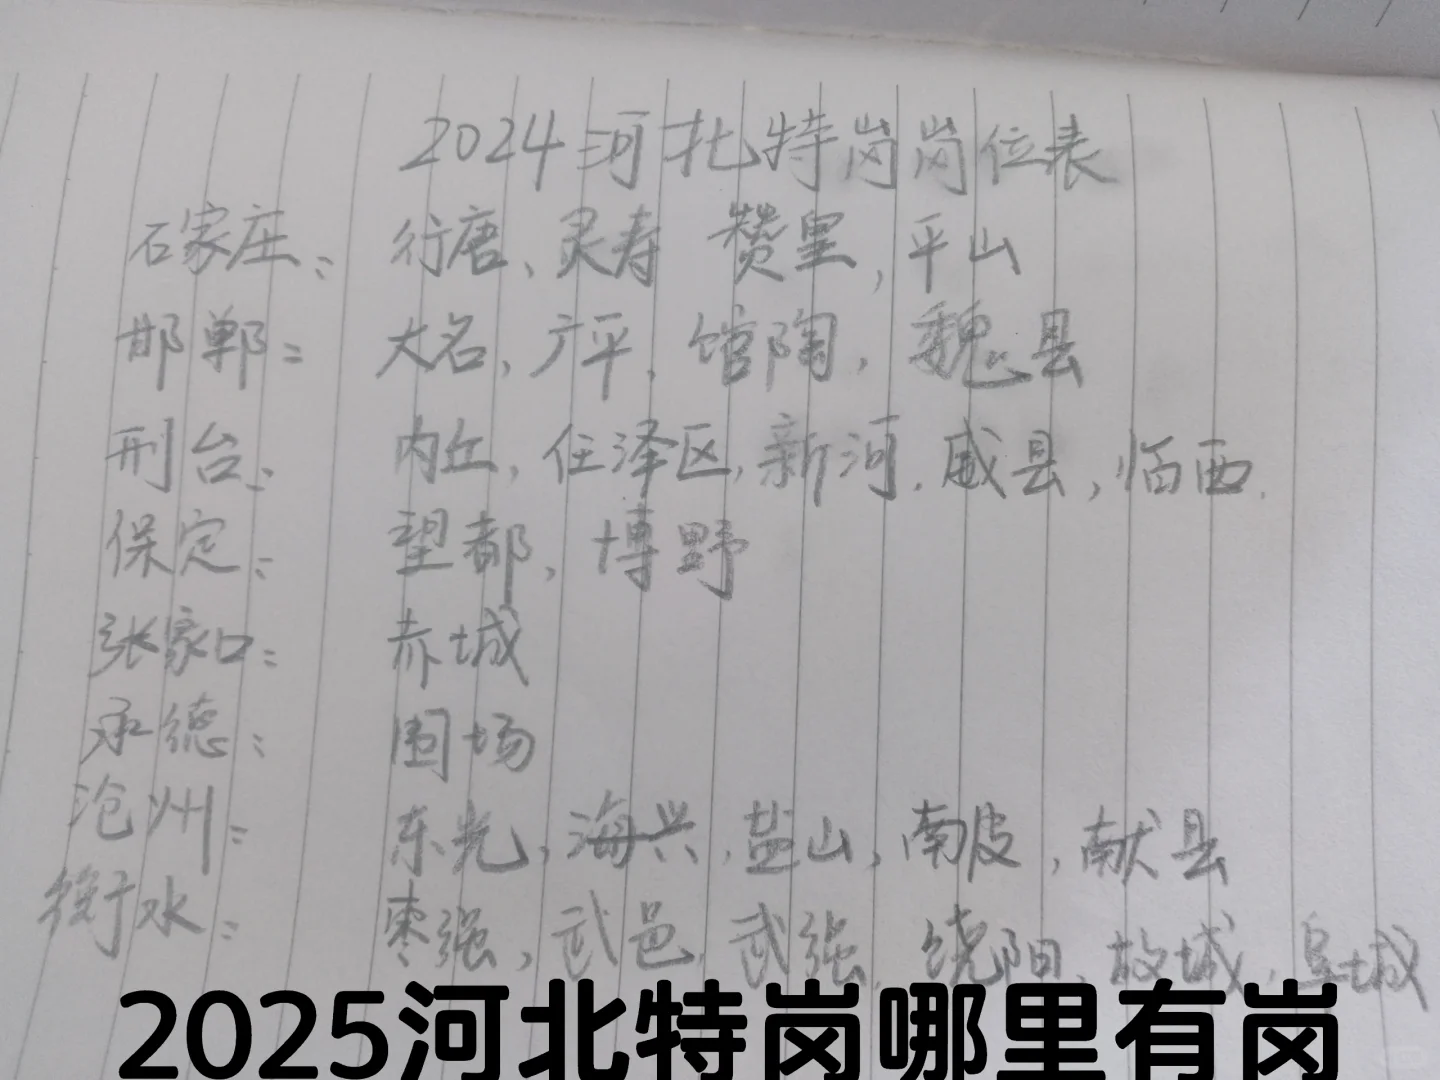 2024河北特岗岗位表
石家庄: 行唐、灵寿 赞皇,平山
邯郸: 大名,广平,馆陶,魏县
刑台: 内丘,任泽区,新河.威县,临西.
保定: 望都,博野
张家口: 赤城
承德: 围场
沧州: 东光,海兴,盐山,南皮,献县
衡水: 枣强,武邑,武强,饶阳,故城,阜城
2025河北特岗哪里有岗